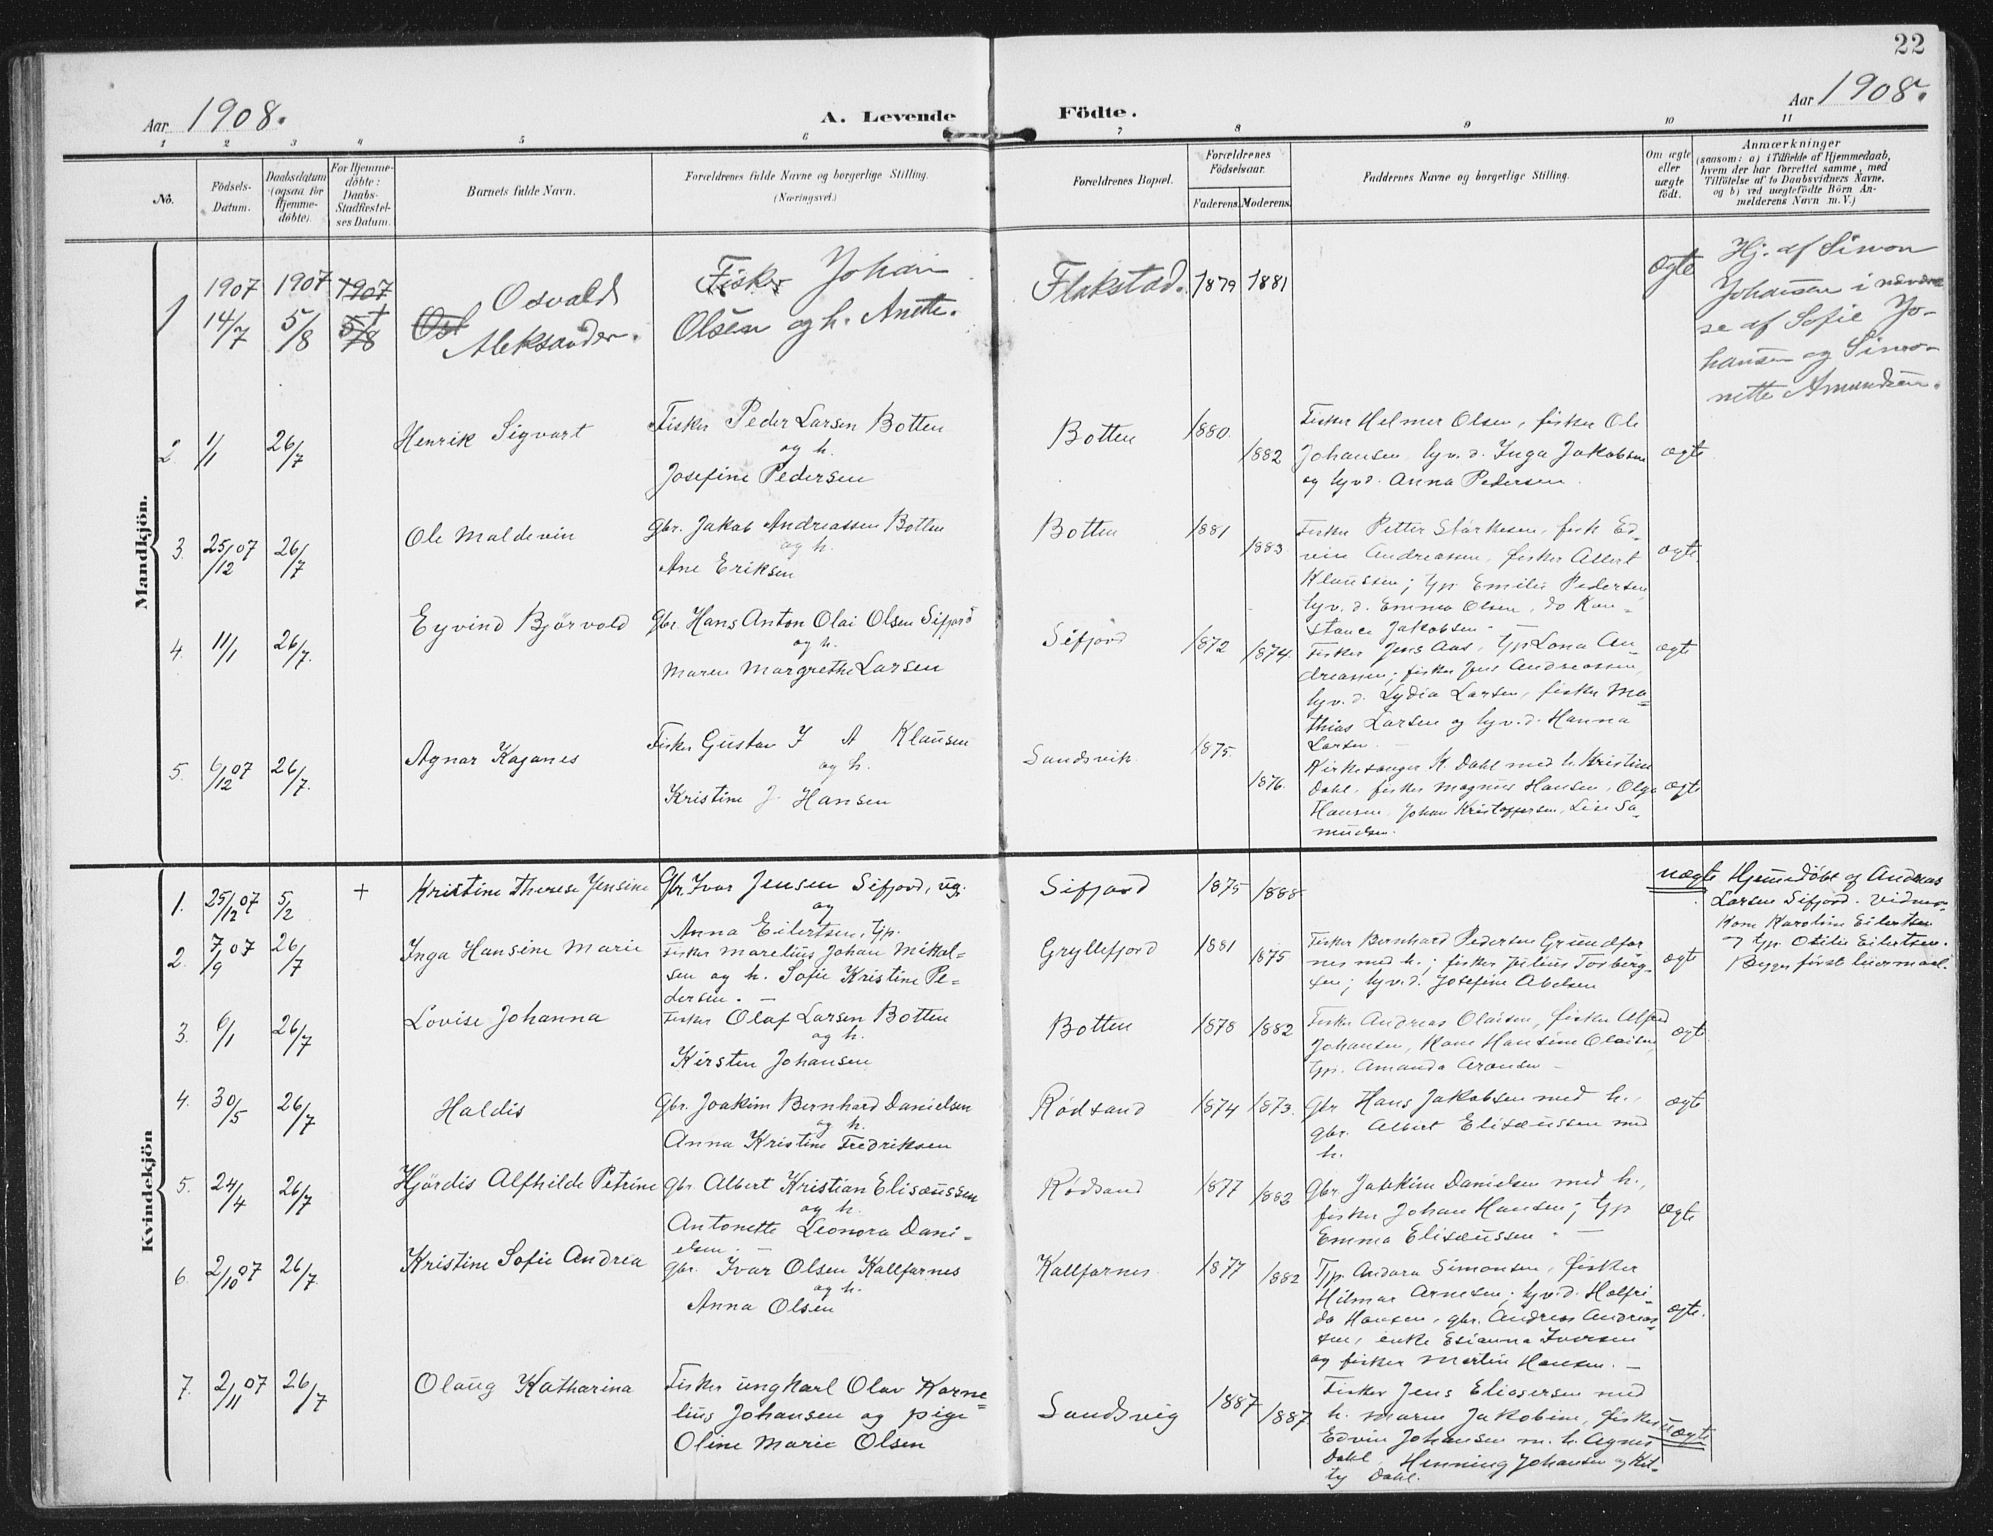 22
Aar 1908.
A. Levende
Födte.
Aar 1908.
1 2 3 4 5 6 7 8 9 10 11
No.
Födsels-Datum.
Daabsdatum (ogsaa for Hjemme-döbte).
For Hjemme-döbte: Daabs-Stadfæstel-ses Datum.
Barnets fulde Navn.
Forældrenes fulde Navne og borgerlige Stilling.
(Næringsvei.)
Forældrenes Bopæl.
Forældrenes Födselsaar.
Faderens. Moderens.
Faddernes Navne og borgerlige Stilling.
Om ægte eller uægte födt.
Anmærkninger
(saasom: a) i Tilfælde af Hjemmedaab,
hvem der har forrettet samme, med
Tilföielse af to Daabsvidners Navne.
og b) ved uegtefödte Börn An-
melderens Navn m. V.)
Mandkjön.
1 1907 14/7 1907 5/8 1907 5/8
Osvald
Aleksander.
Fisker Johan
Olsen og h. Anette.
Flakstad. 1879 1881
ægte
Hj. af Simon
Johansen i nærvæ
se af Sofie Jo-
hansen og Simo-
nette Amundsen.
2 1/1 26/7 Henrik Sigvart
Fisker Peder Larsen Botten
og h.
Josefine Pedersen
Botten 1880. 1882
Fisker Helmer Olsen, fisker Ole
Johansen, tyv. d. Inga Jakobsen
og tyvd. Anna Pedersen.
ægte
3. 25/12 07 26/7 Ole Maldevin
Gbr. Jakob Andreassen Botten
og h.
Ane Eriksen
Botten 1881 1883
Fisker Petter Størkesen, fisk Ed-
vin Andreassen, fisker Albert
Klaussen; typ Emilie Pedersen
tyv. d. Emma Olsen, do Kon-
stance Jakobsen.
ægte.
4. 11/1 26/7. Eyvind Bjørvold
Gbr. Hans Anton Olai Olsen Sifjord
og h.
Maren Margrethe Larsen
Sifjord 1872 1874.
Fisker Jens Aas, typ Lona An-
dreassen; fisker Jens Andreassen,
tyv. d. Lydia Larsen, fisker Ma-
thias Larsen og tyv. d. Hanna
Larsen.
ægte
5. 6/12 07 26/7. Agnar Kaganes
Fisker Gustav J A Klausen
og h.
Kristine J. Hansen
Sandsvik. 1875. 1876.
Kirkesanger K. Dahl med h. Kristine
Dahl, fisker Magnus Hansen, Olga
Hansen, Johan Kristoffersen, Lise Sa-
muelsen.
ægte
Kvindekjön
1. 25/12 07 5/2 + Kristine Therese Jensine
Gbr Ivar Jensen Sifjord, ug.
og
Anna Eilertsen, typ.
Sifjord 1875 1888
uægte
Hjemmedøbt af Andreas
Larsen Sifjord. Vidner
Kone Karoline Eilertsen
og typ. Otilie Eilertsen.
Begges første leiermaal.
2. 7/9 07 26/7 Inga Hansine Marie
Fisker Marelius Johan Mikal-
sen og h. Sofie Kristine Pe-
dersen. —
Gryllefjord 1881 1875
Fisker Bernhard Pedersen Grundfar
nes med h.; fisker Julius Torberg-
sen; tyv. d. Josefine Abelsen
ægte
3. 6/1 26/7 Lovise Johanna
Fisker Olaf Larsen Botten
og h.
Kirsten Johansen
Botten 1878 1882
Fisker Andreas Olaisen, fisker Alfred
Johansen, Kone Hansine Olaisen,
typ. Amanda Aronsen —
ægte
4. 30/5 26/7 Haldis
Gbr. Joakim Bernhard Danielsen
og h.
Anna Kristine Fredriksen
Rödsand 1874 1873.
Gbr Hans Jakobsen med h.,
gbr. Albert Elisæussen med
h.
ægte
5. 24/4 26/7 Hjördis Alfhilde Petrine
Gbr. Albert Kristian Elisæussen
og h.
Antonette Leonora Dani-
elsen.
Rödsand 1877 1882
Gbr Joakim Danielsen med h.,
fisker Johan Hansen; typ
Emma Elisæussen. —
ægte
6. 2/10 07 26/7. Kristine Sofie Andrea
Gbr. Ivar Olsen Kalfarnes
og h.
Anna Olsen
Kalfarnes. 1877 1882
Typ. Andora Simonsen, fisker
Hilmar Arnesen, tyv. d. Halfri-
da Hansen, gbr. Andreas Andreas-
sen, enke Esianna Iversen
og fisker Martin Hansen. —
ægte.
7. 2/11 07 26/7 Olaug Katharina
Fisker ungkarl Olav Korne-
lius Johansen og pige
Oline Marie Olsen
Sandsvig 1887 1887
Fisker Jens Eliasersen med
h. Maren Jakobine, fisker
Edvin Johansen m. h. Agnes
Dahl, Henning Johansen og Kit-
ty Dahl.
uægte